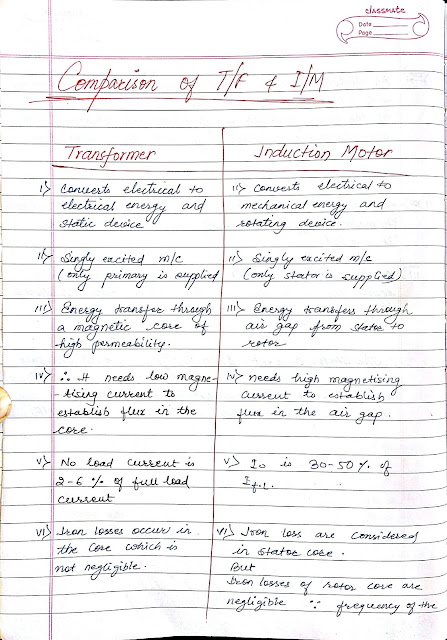 classmate
Date
Page
Comparison of T/F & I/M
Transformer
i> Converts electrical to
electrical energy and
static device
ii> Singly excited m/c
(only primary is supplied
iii> Energy transfer through
a magnetic core of
high permeability.
iv> ∴ It needs low magne-
-tising current to
establish flux in the
core.
v> No load current is
2-6 % of full load
current
vi> Iron losses occur in
the core which is
not negligible.
Induction Motor
i> Converts electrical to
mechanical energy and
rotating device.
ii> Singly excited m/c
(only stator is supplied)
iii> Energy transfers through
air gap from stator to
rotor
iv> needs high magnetising
current to establish
flux in the air gap.
v> Io is 30-50% of
If.l.
vi> Iron loss are considered
in stator core.
But
Iron losses of rotor core are
negligible ∵ frequency of the